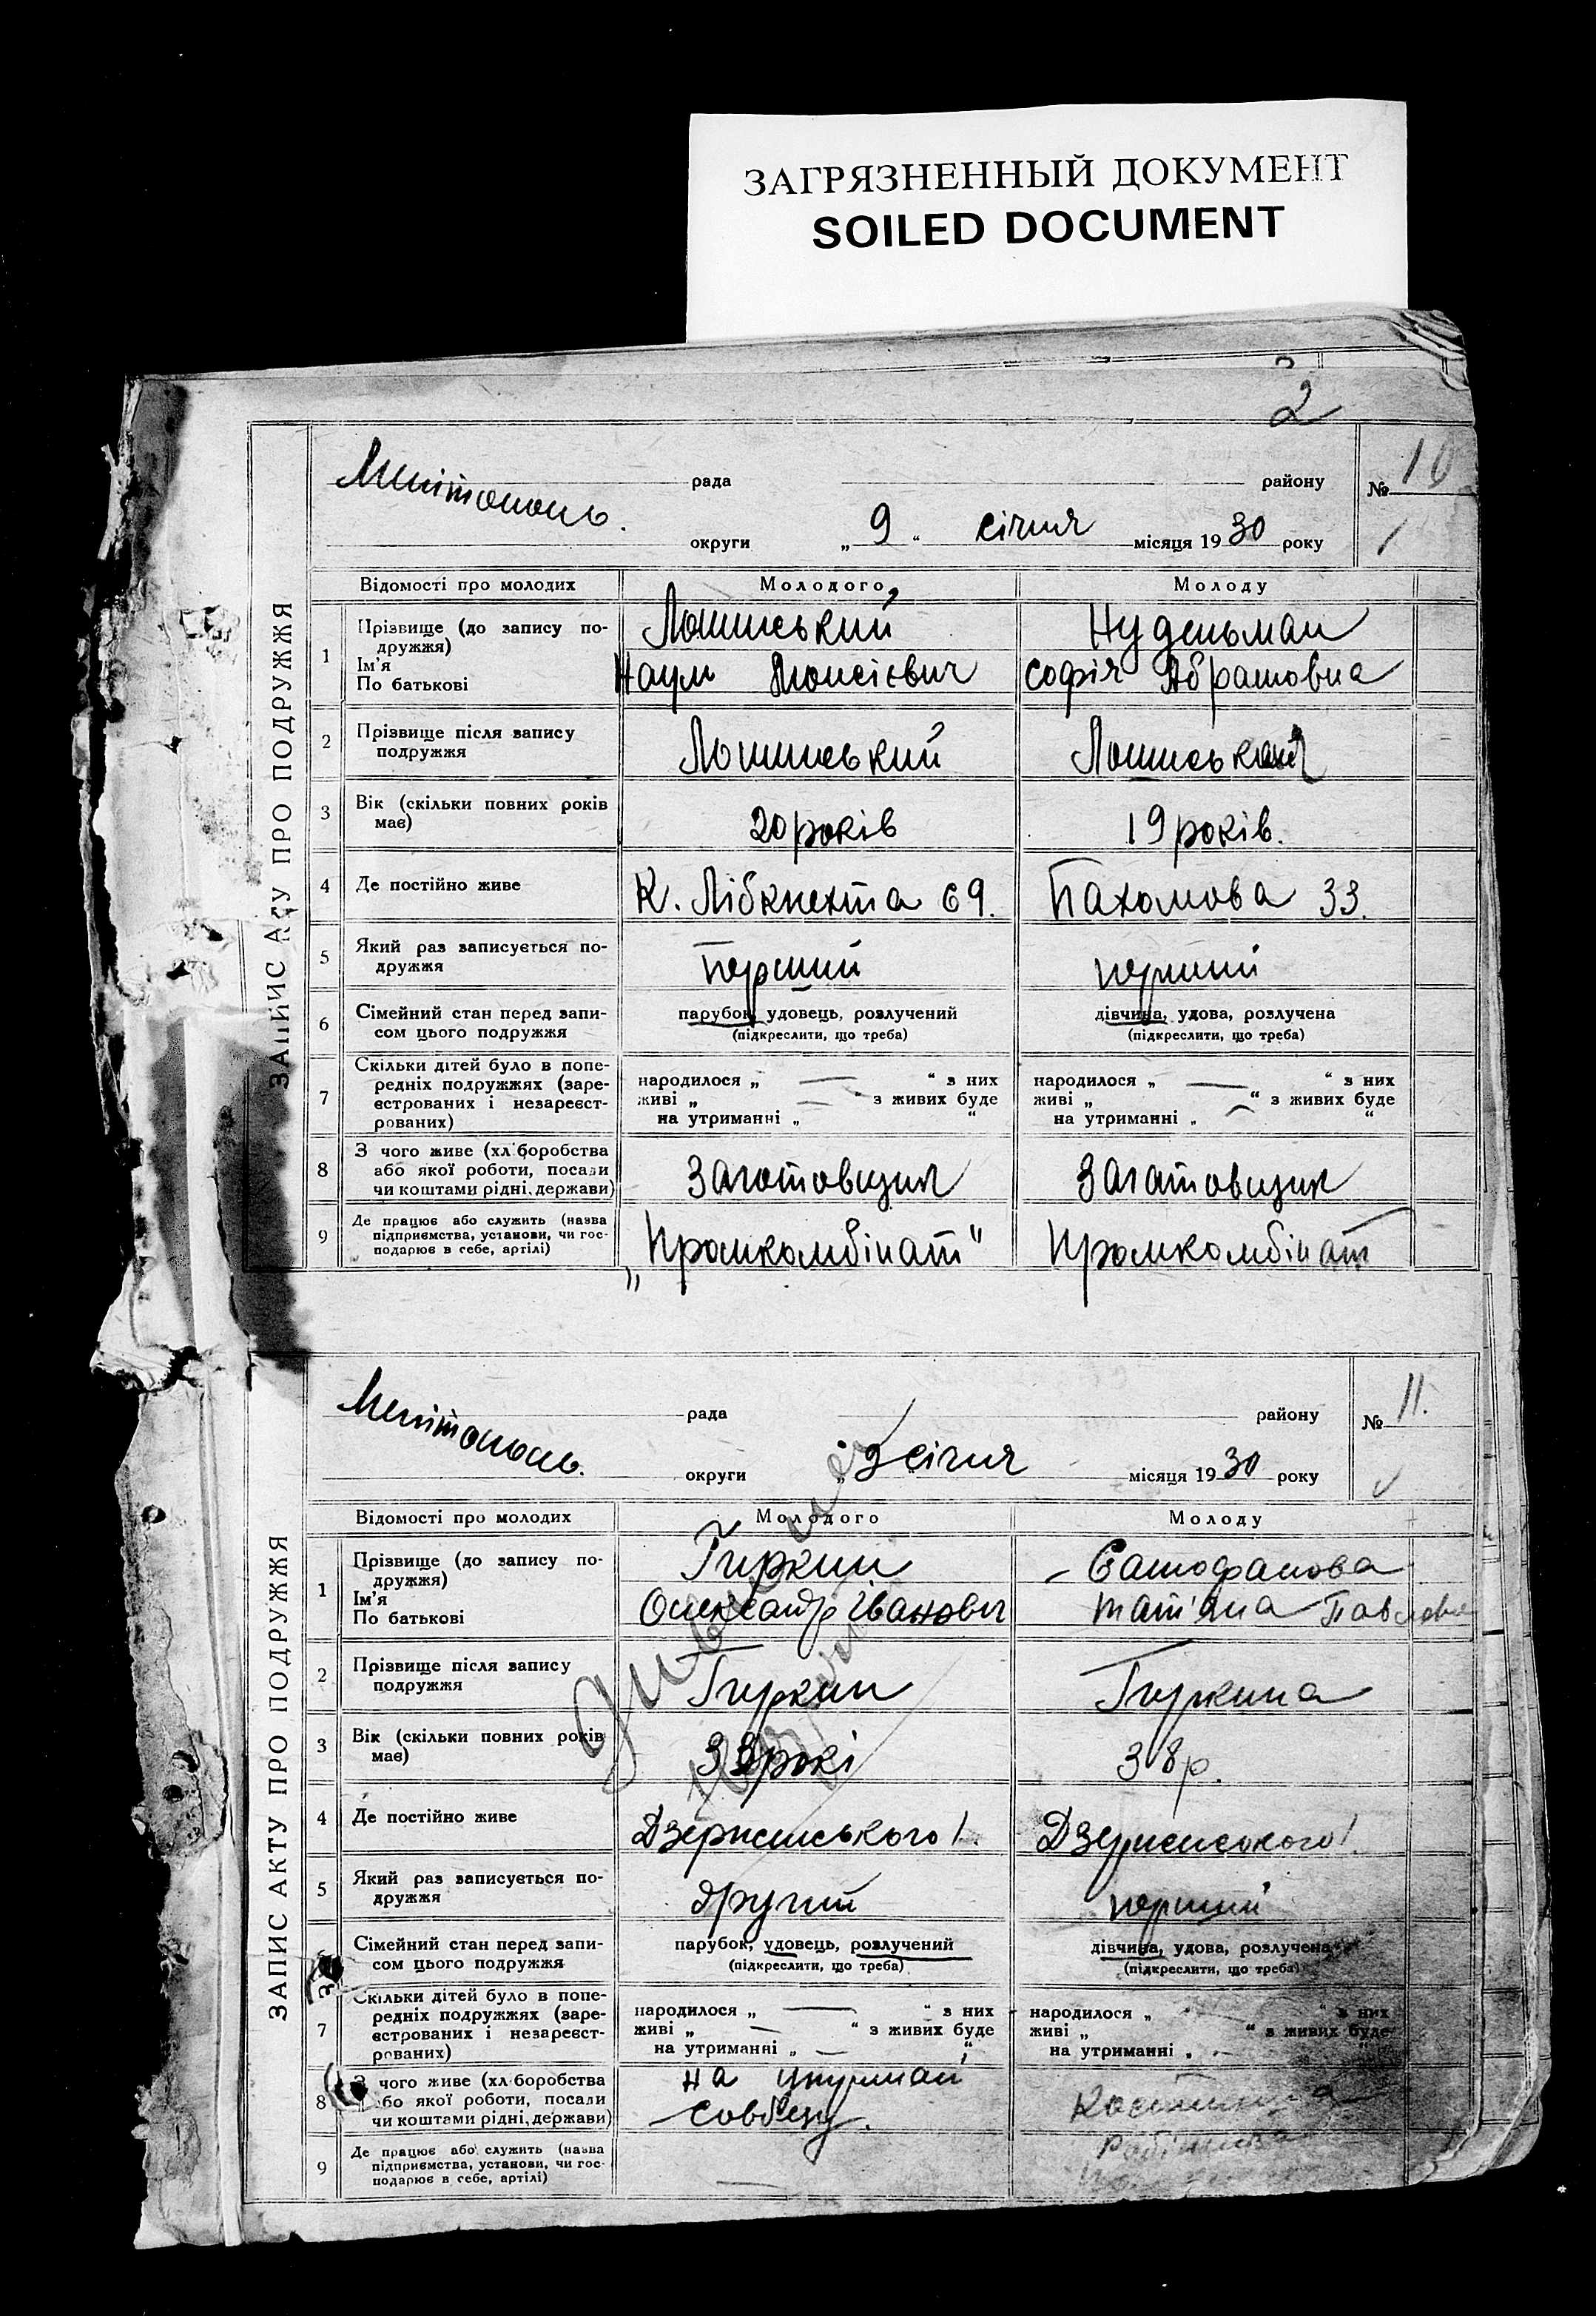 ЗАГРЯЗНЕННЫЙ ДОКУМЕНТ
SOILED DOCUMENT
2
ЗАПИС АКТУ ПРО ПОДРУЖЖЯ
Мелітополь.
рада району № 10
округи „ 9 “ січня місяця 1930 року
Відомості про молодих Молодого Молоду
1 Прізвище (до запису подружжя) Лошинський Нудельман
Ім'я По батькові Наум Мойсієвич Софія Абрамовна
2 Прізвище після запису подружжя Лошинський
3 Вік (скільки повних років має) 20 років 19 років.
4 Де постійно живе К. Лібкнехта 69. Пахомова 33.
5 Який раз записується подружжя Перший перший
6 Сімейний стан перед записом цього подружжя парубок, удовець, розлучений дівчина, удова, розлучена
(підкреслити, що треба) (підкреслити, що треба)
7 Скільки дітей було в попередніх подружжях (зареєстрованих і незареєстрованих)
народилося „ — “ з них народилося „ — “ з них
живі „ — “ з живих буде живі „ “ з живих буде
на утриманні „ “ на утриманні „ — “
8 З чого живе (хліборобства або якої роботи, посади чи коштами рідні, держави) Заготовщик Заготовщик
9 Де працює або служить (назва підприємства, установи, чи господарює в себе, артілі) „Промкомбінат" Промкомбінат
ЗАПИС АКТУ ПРО ПОДРУЖЖЯ
Мелітополь.
рада району № 11.
округи „ 9 січня місяця 1930 року
Відомості про молодих Молодого Молоду
1 Прізвище (до запису подружжя) Гиркин
Ім'я По батькові Олександр Іванович Тат'яна Павловна
2 Прізвище після запису подружжя Гиркин Гиркина
3 Вік (скільки повних років має) 33 рокі 38 р.
4 Де постійно живе Дзержинського 1. Дзержинского 1.
5 Який раз записується подружжя другий перший
Сімейний стан перед записом цього подружжя парубок, удовець, розлучений дівчина, удова, розлучена
(підкреслити, що треба) (підкреслити, що треба)
7 Скільки дітей було в попередніх подружжях (зареєстрованих і незареєстрованих)
народилося „ — “ з них народилося „ “ з них
живі „ — “ з живих буде живі „ “ з живих буде
на утриманні „ — “ на утриманні „ -
8 З чого живе (хліборобства або якої роботи, посади чи коштами рідні, держави) на утриман
9 Де працює або служить (назва підприємства, установи, чи господарює в себе, артілі) —